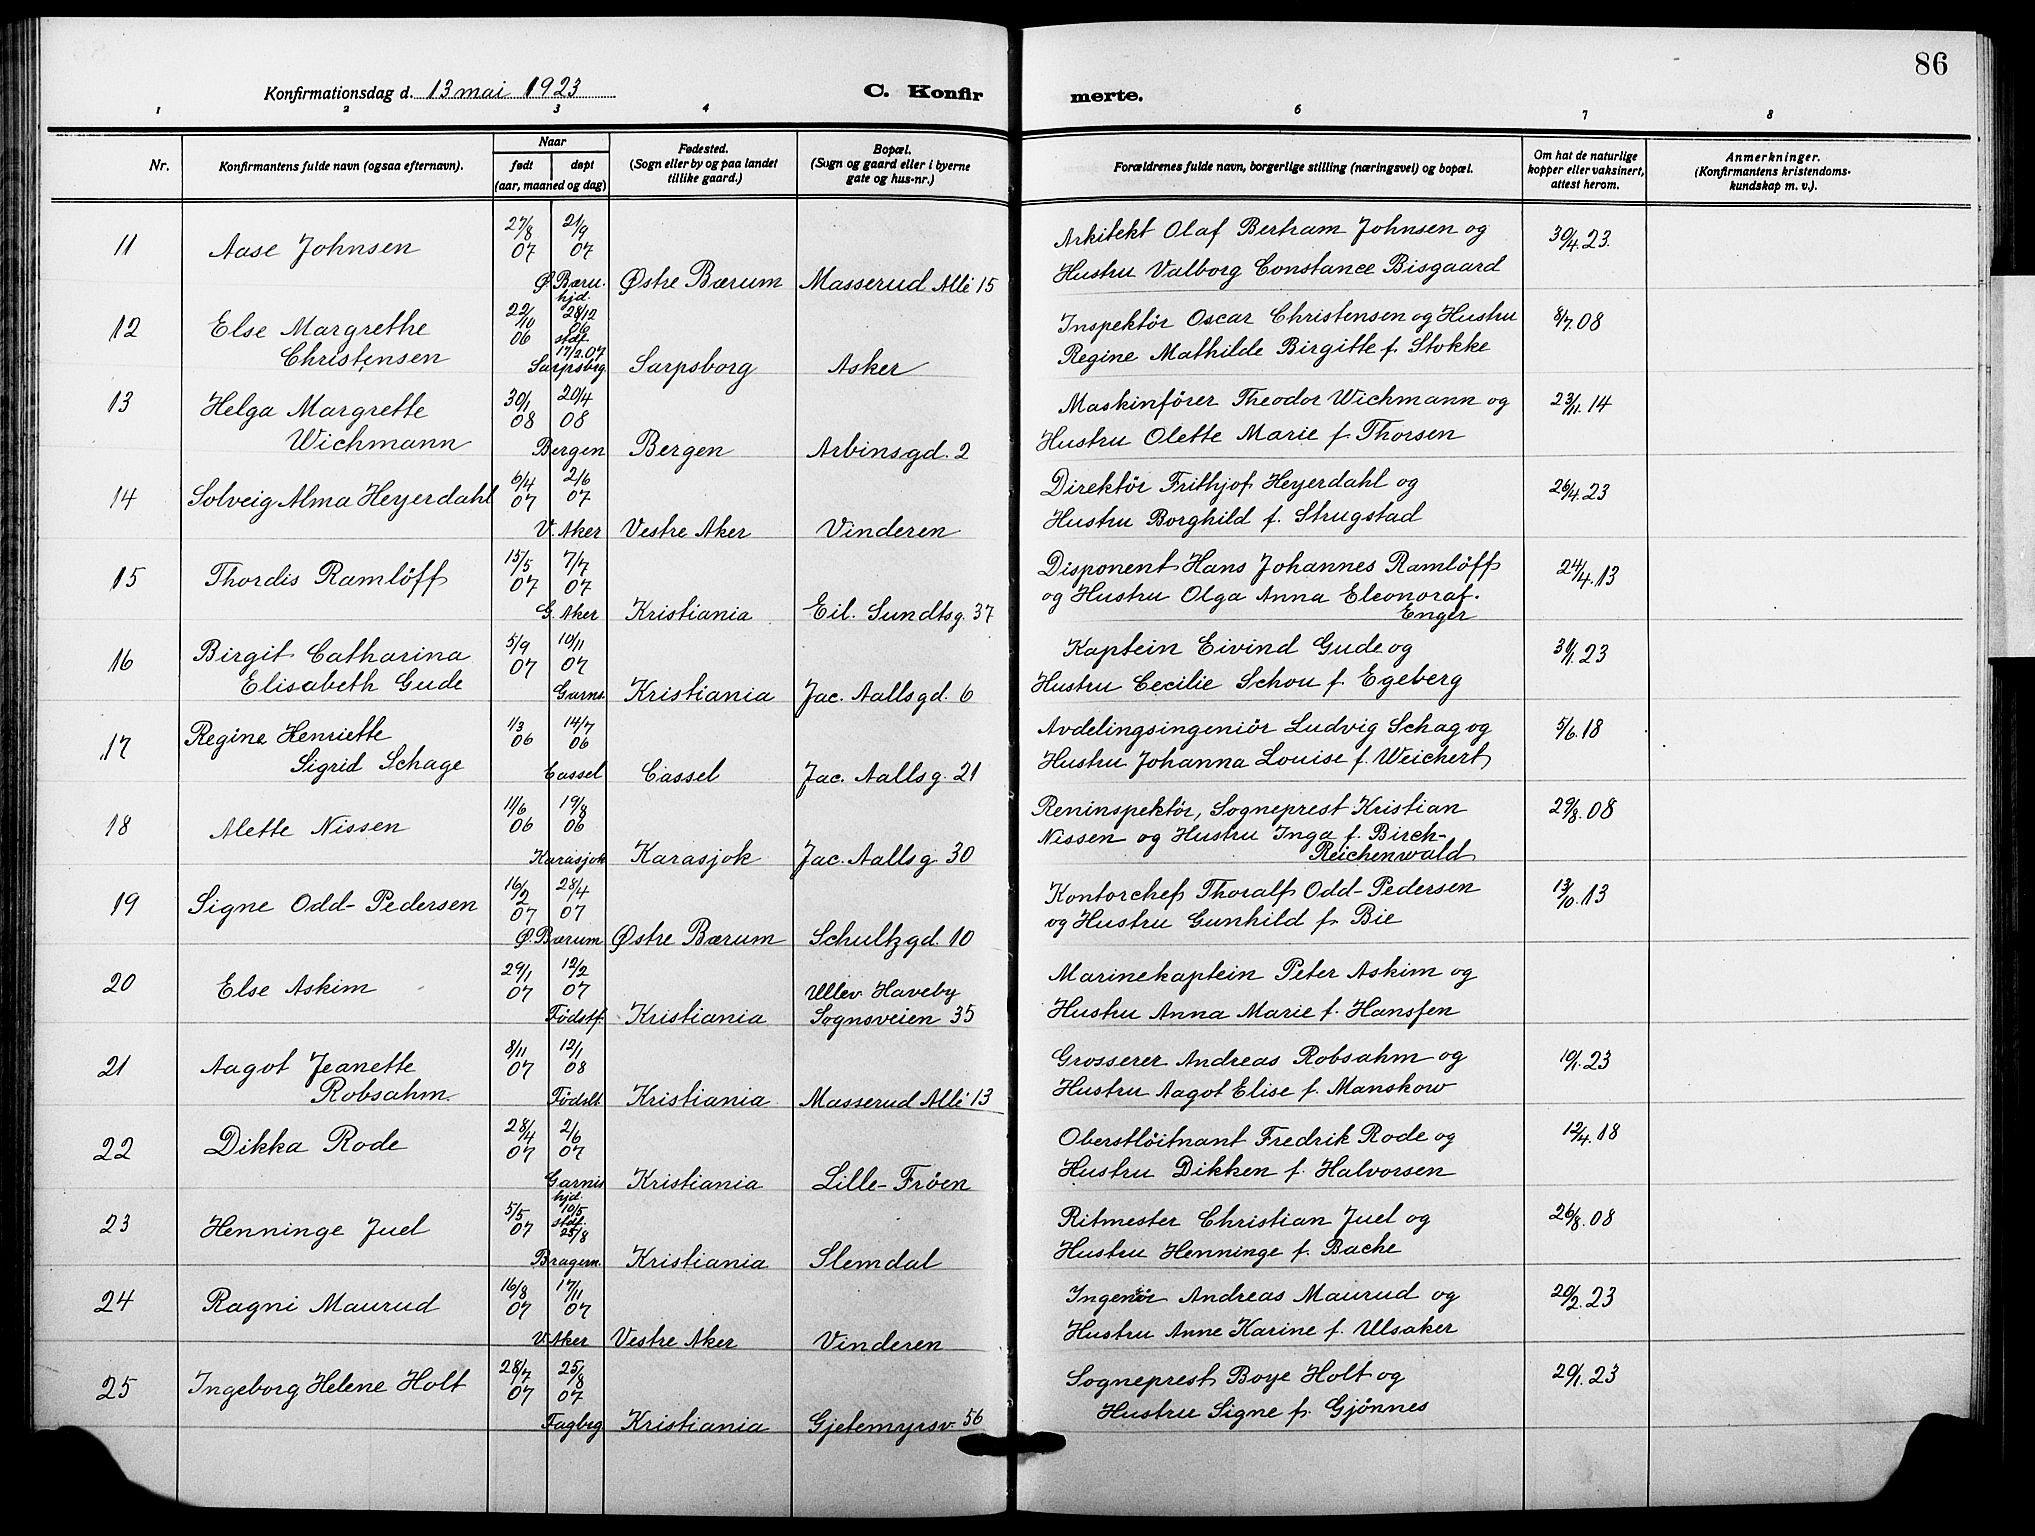 86
Konfirmationsdag d. 13 mai 1923
C. Konfir
merte.
1 2 3 4 6 7 8
Nr.
Konfirmantens fulde navn (ogsaa efternavn).
Naar
født
døpt
(aar, maaned og dag)
Fødested.
(Sogn eller by og paa landet
tillike gaard.)
Bopæl.
(Sogn og gaard eller i byerne
gate og hus-nr.)
Forældrenes fulde navn, borgerlige stilling (næringsvei) og bopæl.
Om hat de naturlige
kopper eller vaksinert,
attest herom.
Anmerkninger.
(Konfirmantens kristendoms-
kundskap m. v.).
27/8 21/9 Arkitekt Olaf Bertram Johnsen og
11 Aase Johnsen 07 07 30/4.23.
Ø. Bæru. Østre Bærum Masserud Allé 15 Hustru Valborg Constance Bisgaard
hjd.
22/10 28/12
12 Else Margrethe 06 06 Inspektör Oscar Christensen og Hustru 8/7.08
stdf.
Christensen 17/2.07 Regine Mathilde Birgitte f. Stokke
Sarpsbrg Sarpsborg Asker
13 Helga Margrette 30/1 20/4 Maskinförer Theodor Wichmann og 23/11.14
08 08
Wichmann Hustru Olette Marie f. Thorsen
Bergen Bergen Arbinsgd. 2
14 Solveig Alma Heyerdahl 6/4 2/6 Direktör Frithjof Heyerdahl og 26/4.23
07 07
V. Aker Vestre Aker Vinderen Hustru Borghild f. Strugstad
15 Thordis Ramlöff 15/5 7/7 Disponent Hans Johannes Ramlöff 24/4.13
07 07 og Hustru Olga Anna Eleonora f.
G. Aker Kristiania Eil. Sundtsg. 37 Enger
16 Birgit Catharina 5/9 10/11 Kaptein Eivind Gude og 30/1.23
07 07
Elisabeth Gude Garns. Kristiania Jac. Aallsgd. 6 Hustru Cecilie Schou f. Egeberg
17 Regine Henriette 1/3 14/7 Avdelingsingeniör Ludvig Schag og 5/6.18
06 06
Sigrid Schage Cassel Cassel Jac. Aallsg. 21 Hustru Johanna Louise f. Weichert
18 Alette Nissen 11/6 19/8 Reninspektör, Sogneprest Kristian 29/8.08
06 06 Nissen og Hustru Inga f. Birch-
Karasjok Karasjok Jac. Aallsg. 30 Reichenwald
19 Signe Odd-Pedersen 16/2 28/4 Kontorchef Thoralf Odd-Pedersen 13/10.13
07 07 og Hustru Gunhild f. Bie
Ø. Bærum Østre Bærum Schultzgd. 10
20 Else Askim 29/1 12/2 Marinekaptein Peter Askim og
07 07 Ullev. Haveby
Födstf. Kristiania Sognsveien 35 Hustru Anna Marie f. Hansfen
21 Aagot Jeanette 8/11 12/1 Grosserer Andreas Robsahm og 10/1.23
07 08
Robsahm. Födslt. Kristiania. Masserud Allé 13 Hustru Aagot Elise f. Manskow
22 Dikka Rode 28/4 2/6 Oberstlöitnant Fredrik Rode og 12/4.18
07 07
Garnis Kristiania Lille-Fröen Hustru Dikken f. Halvorsen
hjd.
23 Henninge Juel 5/5 10/5 Ritmester Christian Juel og 26/8.08
07 stdf.
25/8
Bragern. Kristiania Slemdal Hustru Henninge f. Bache
24 Ragni Maurud 16/8 17/11 Ingeniör Andreas Maurud og 20/2.23
07 07
V. Aker Vestre Aker Vinderen Hustru Anne Karine f. Ulsaker
25 Ingeborg Helene Holt 28/7 25/8 Sogneprest Boye Holt og 20/1.23
07 07
Fagbrg Kristiania Gjetemyrsv. 56 Hustru Signe f. Gjönnes